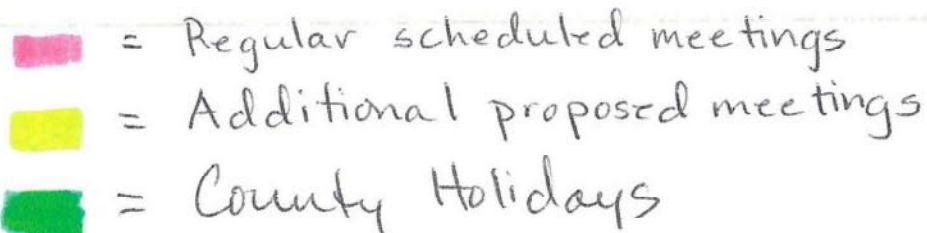 = Regular scheduled meetings
= Additional proposed meetings
= County Holidays